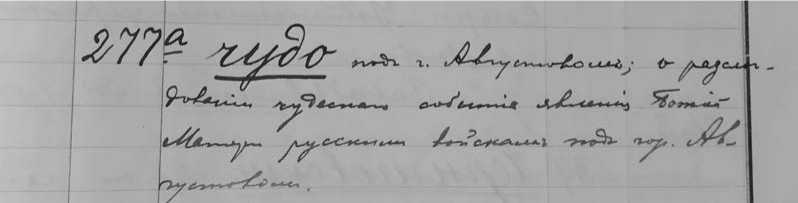 277а чудо подъ г. Августовомъ; о разслѣ-
дованіи чудеснаго событія явленія Божіей
Матери русскимъ войскамъ подъ гор. Ав-
густовомъ.